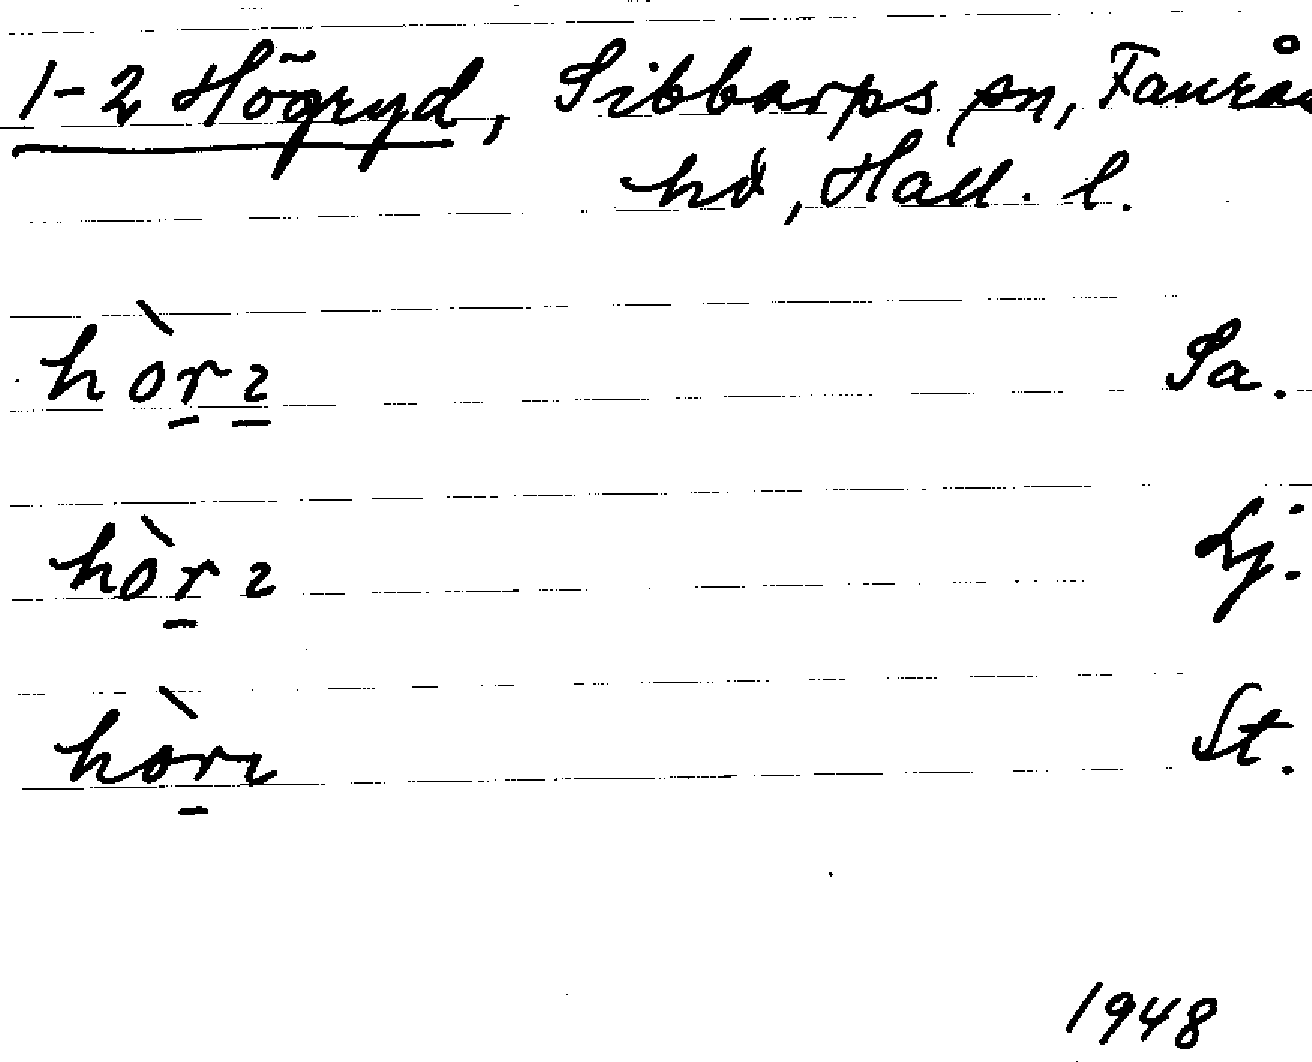 1-2 Högryd, Sibbarps sn, Faurås
hd, Hall. l.
hòr̲ɩ̲ Sa.
hòr̲ɩ Lj.
hòr̲ɩ St.
1948